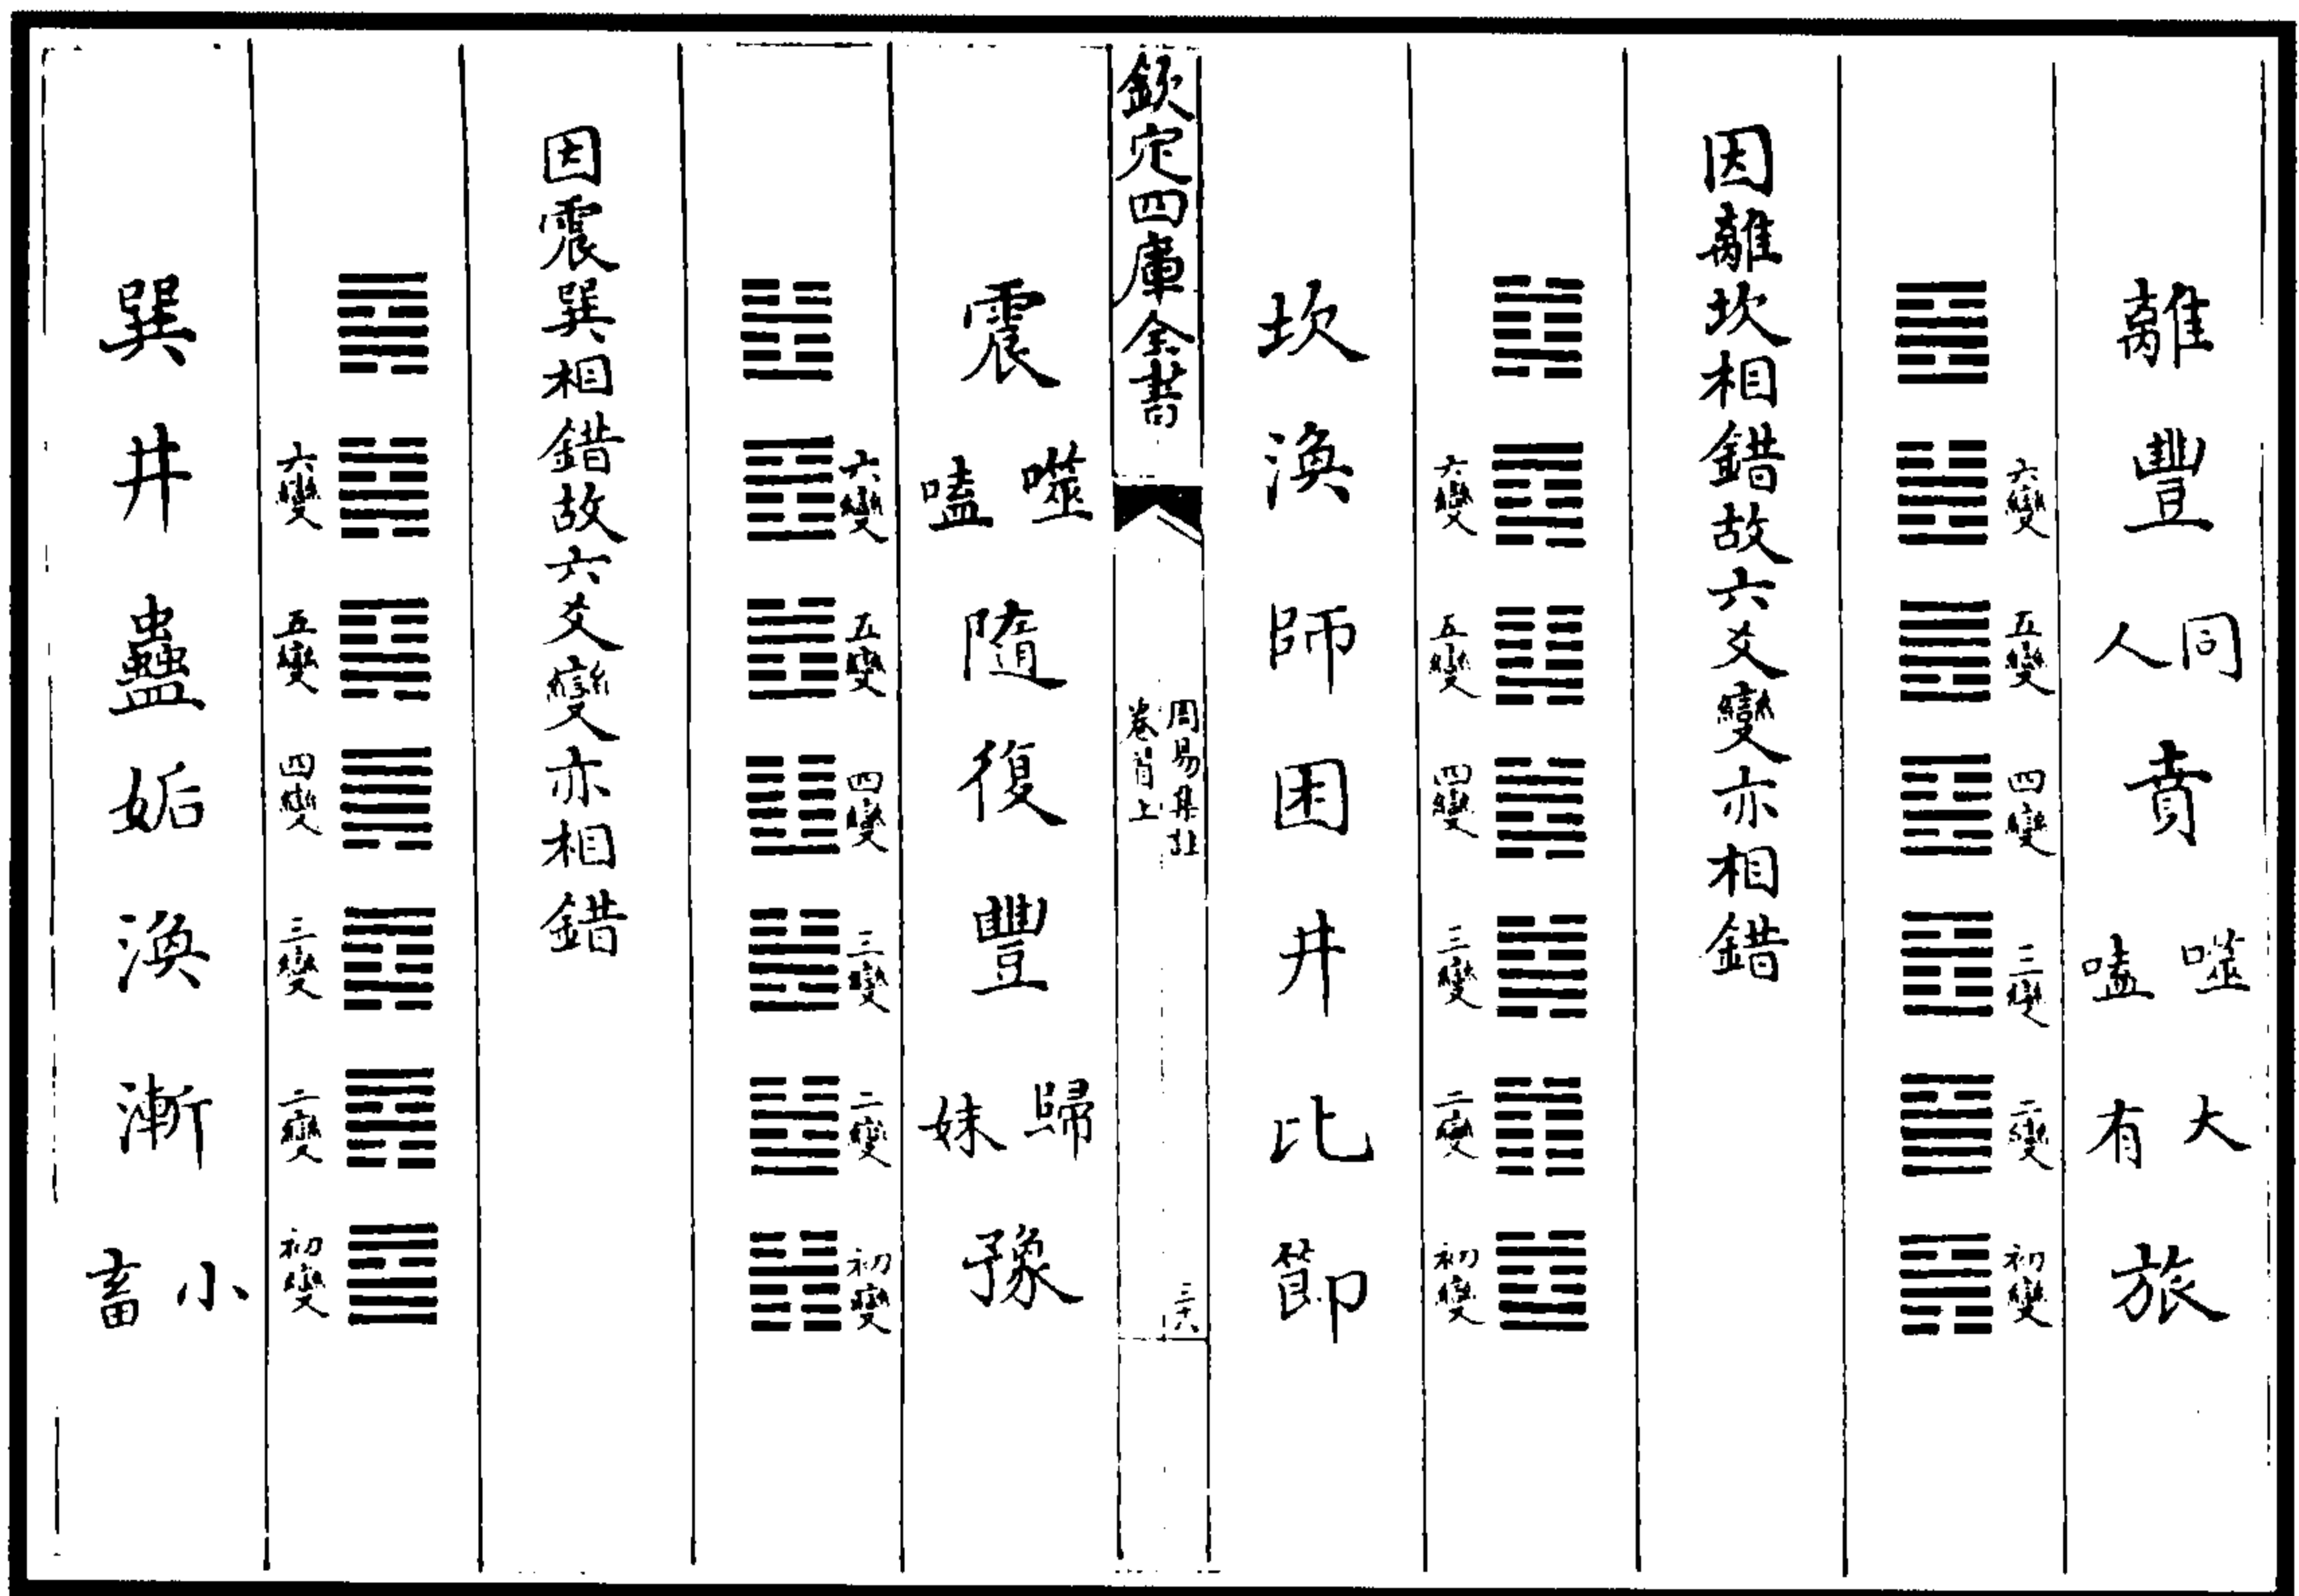 離 豐 同人 賁 噬嗑 大有 旅
六變 五變 四變 三變 二變 初變
因離坎相錯故六爻變亦相錯
六變 五變 四變 三變 二變 初變
坎 渙 師 困 井 比 節
欽定四庫全書
周易集註
卷首上
三十六
震 噬嗑 隨 復 豐 歸妹 豫
六變 五變 四變 三變 二變 初變
因震巽相錯故六爻變亦相錯
六變 五變 四變 三變 二變 初變
巽 井 蠱 姤 渙 漸 小畜